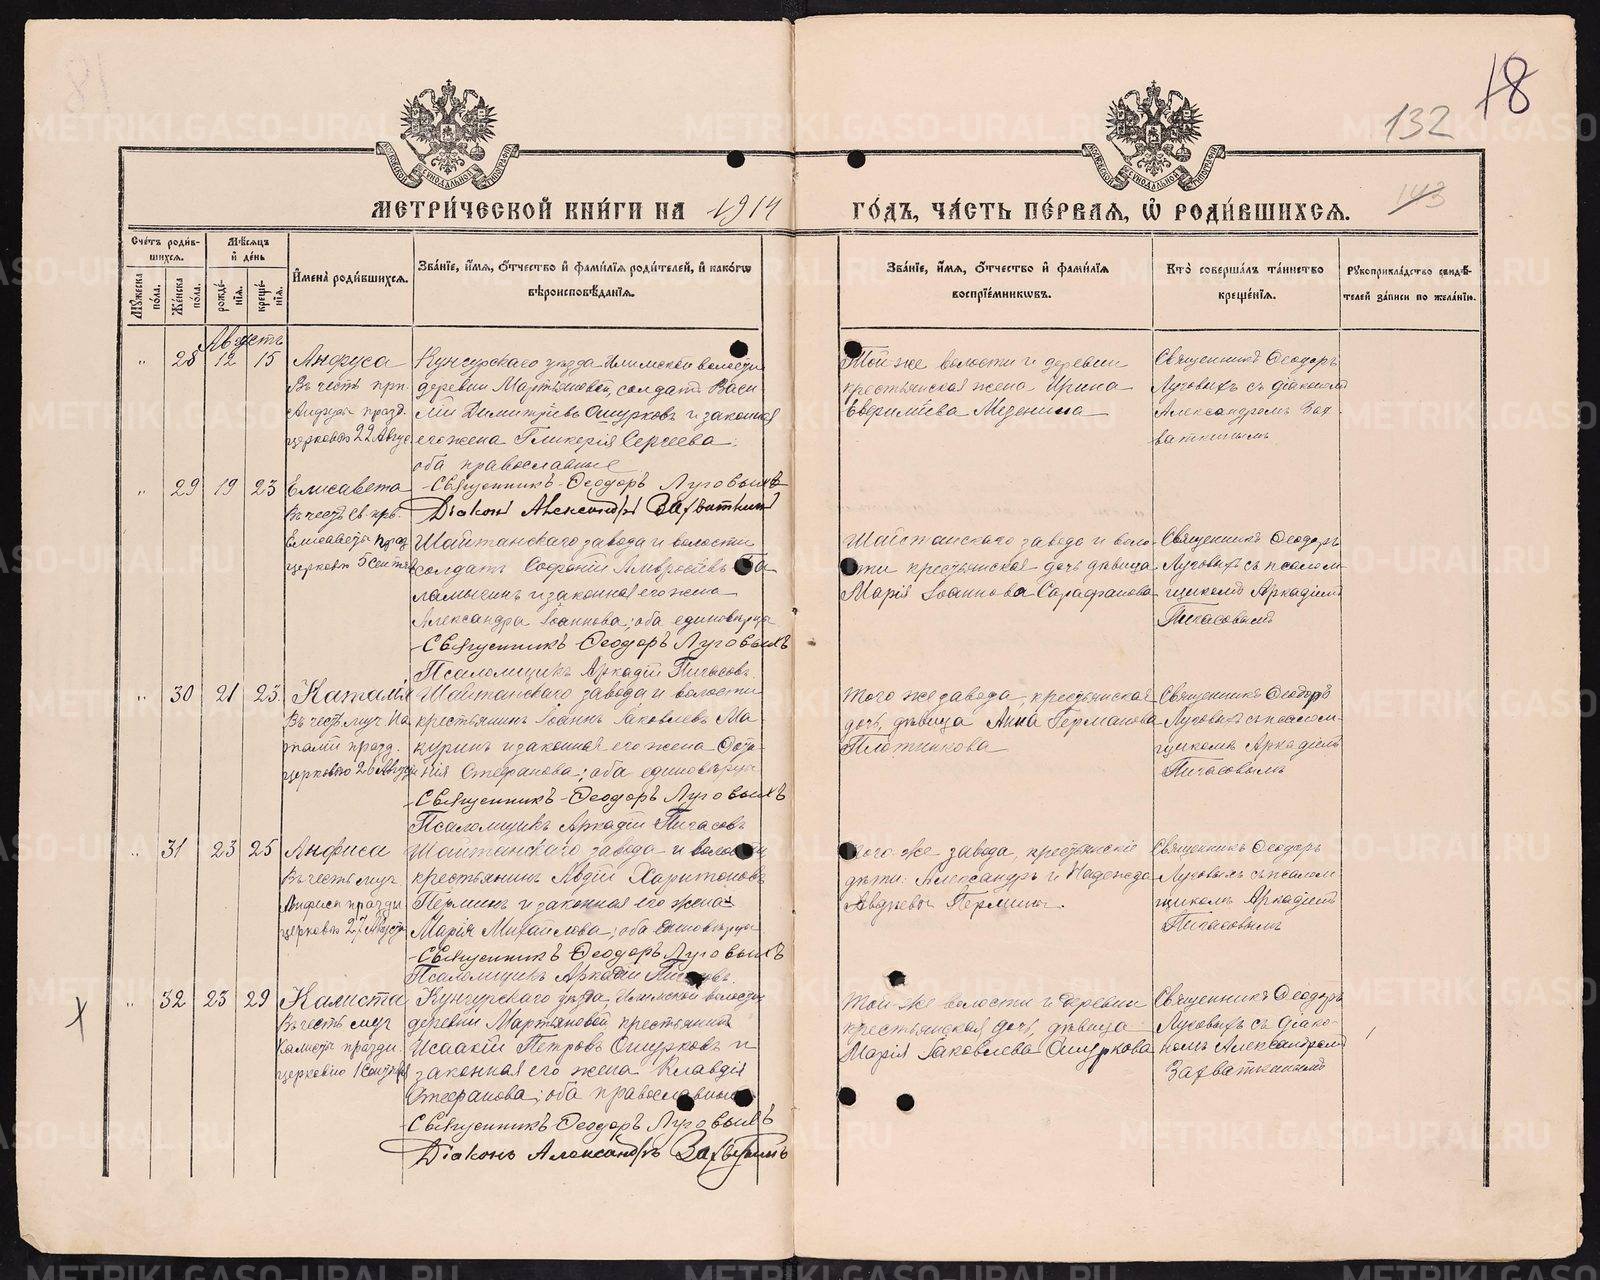 18
132
143
МЕТРИЧЕСКОЙ КНИГИ НА 1914
ГОДЪ, ЧАСТЬ ПЕРВАЯ, Ѡ РОДИВШИХСЯ.
Счетъ родившихся.
Мужеска пола.
Женска пола.
Мѣсяцъ и день
рожденія.
крещенія.
Имена родившихся.
Званіе, имя, отчество и фамилія родителей, и какогѡ
вѣроисповѣданія.
Званіе, имя, отчество и фамилія
воспріемникѡвъ.
Кто совершалъ таинство
крещенія.
Рукоприкладство свидѣ-
телей записи по желанію.
Августъ
" 28 12 15
Анфуса
Въ честь прп.
Анфусы празд.
церковью 22 Авгус
Кунгурскаго уѣзда Илимской волости
деревни Мартьяновой, солдатъ Васи
лій Димитріевъ Ошурковъ и законная
его жена Гликерія Сергеева;
оба православные
Священникъ Ѳеодоръ Луговыхъ
Діаконъ Александръ Захваткинъ
Той-же волости и деревни
крестьянская жена Ирина
Мезенина
Священникъ Ѳеодоръ
Луговыхъ съ діакономъ
Александромъ Зах-
ваткинымъ
" 29 19 23
Елисавета
Въ честь Св. прв.
Елисаветы празд
церковью 5 Сентяб
Шайтанскаго завода и волости
солдатъ Софроній Амвросіевъ Ба
ламыгинъ и законная его жена
Александра Іоаннова; оба единовѣрцы
Священникъ Ѳеодоръ Луговыхъ
Псаломщикъ Аркадій Пигасовъ
Шайтанскаго завода и воло-
сти крестьянская дочь дѣвица
Марія Іоаннова Сарафанова
Священникъ Ѳеодоръ
Луговыхъ съ псалом-
щикомъ Аркадіемъ
Пигасовымъ
" 30 21 23
Наталія
Въ честь муч. На
таліи празд.
церковью 26 Август
Шайтанскаго завода и волости
крестьянинъ Іоаннъ Іаковлевъ Ма-
куринъ и законная его жена
Стефанова; оба единовѣрцы
Священникъ Ѳеодоръ Луговыхъ
Псаломщикъ Аркадій Пигасовъ
Того же завода, крестьянская
дочь, дѣвица Анна Германова
Плотникова
Священникъ Ѳеодоръ
Луговыхъ съ псалом-
щикомъ Аркадіемъ
Пигасовымъ
" 31 23 25
Анфиса
Въ честь муч.
Анфисы праздн
церковью 27 Август
Шайтанскаго завода и волости
крестьянинъ Авдій Харитоновъ
Перминъ и законная его жена
Марія Михаилова; оба единовѣрцы
Священникъ Ѳеодоръ Луговыхъ
Псаломщикъ Аркадій Пигасовъ
Того-же завода, крестьянскіе
дѣти: Александръ и Надежда
Авдіевы Пермины.
Священникъ Ѳеодоръ
Луговыхъ съ псалом
щикомъ Аркадіемъ
Пигасовымъ
" 32 23 29
Калиста
Въ честь муч
Калисты праздн.
церковію 1 Сентября
Кунгурскаго уѣзда, Илимской волости,
деревни Мартьяновой крестьянинъ
Исаакій Петровъ Ошурковъ и
законная его жена Клавдія
Стефанова; оба православные
Священникъ Ѳеодоръ Луговыхъ
Діаконъ Александръ Захваткинъ
Той-же волости и деревни
крестьянская дочь, дѣвица
Марія Іаковлева Ошуркова
Священникъ Ѳеодоръ
Луговыхъ съ діако-
номъ Александромъ
Захваткинымъ
METRIKI.GASO-URAL.RU